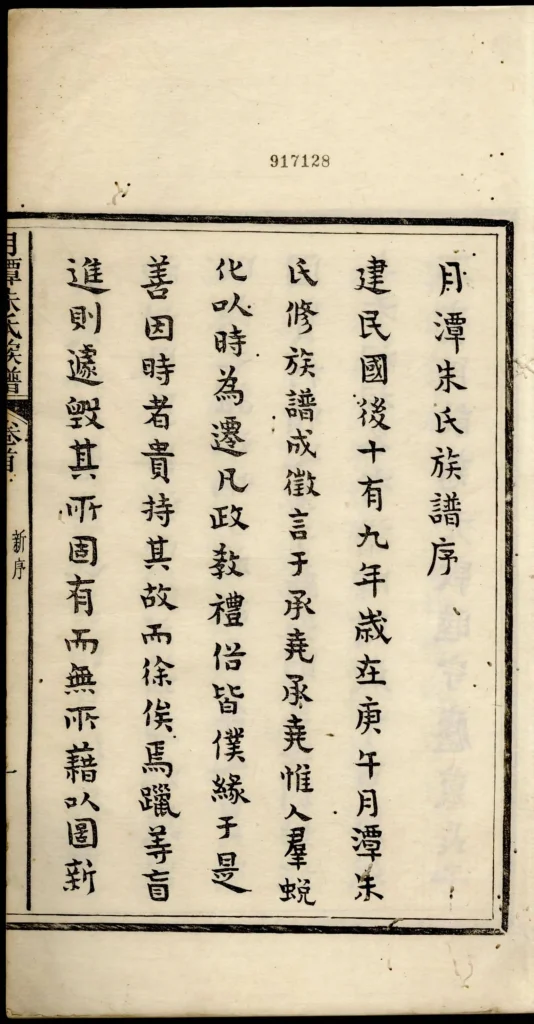 917128
月潭朱氏族譜序
建民國後十有九年歲在庚午月潭朱
氏修族譜成徵言于承堯承堯惟人羣蛻
化以時為遷凡政教禮俗皆僕緣于是
善因時者貴持其故而徐俟焉躐等盲
進則遽毀其所固有而無所藉以圖新
月潭朱氏族譜 卷首 新序